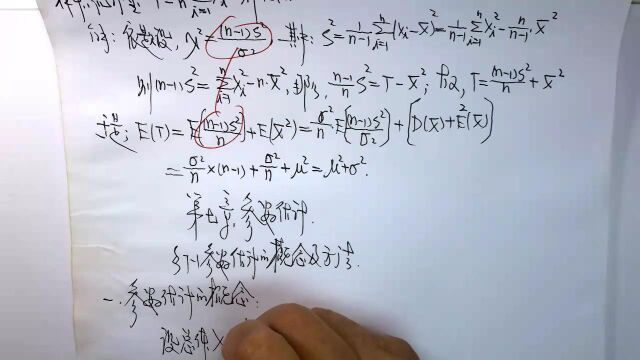 证: 依题设, χ² = (n-1)S²/σ² 其中: S² = 1/(n-1) ∑_{i=1}^{n} (X_i - X̄)² = 1/(n-1) ∑_{i=1}^{n} X_i² - n/(n-1) X̄²
则 (n-1)S² = ∑_{i=1}^{n} X_i² - n·X̄², 即, (n-1)/n S² = T - X̄²; 故, T = (n-1)S²/n + X̄²
于是; E(T) = E[(n-1)S²/n] + E(X̄²) = σ²/n E[(n-1)S²/σ²] + [D(X̄) + E²(X̄)]
= σ²/n × (n-1) + σ²/n + μ² = μ² + σ².
第七章, 参数估计.
§7-1 参数估计的概念及方法.
一. 参数估计的概念:
设总体X